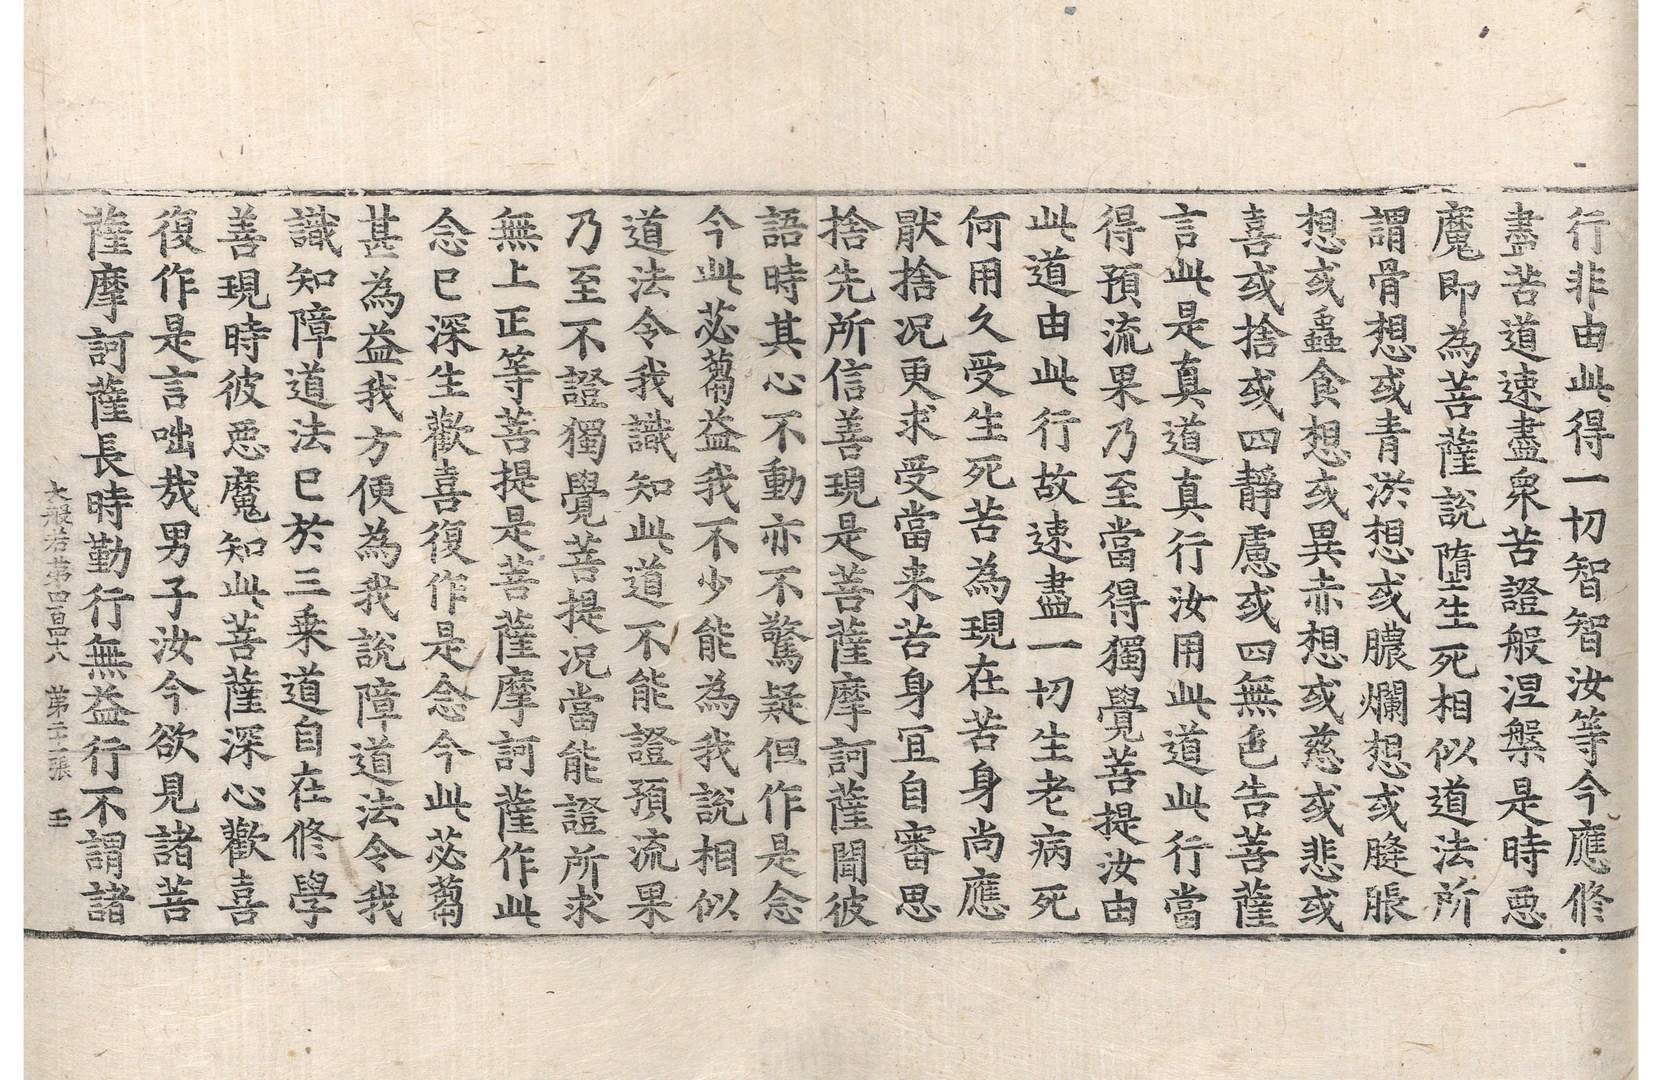 行非由此得一切智智汝等今應修
盡苦道速盡衆苦證般涅槃是時惡
魔即為菩薩說墮生死相似道法所
謂骨想或青淤想或膿爛想或膖脹
想或蟲食想或異赤想或慈或悲或
喜或捨或四靜慮或四無色告菩薩
言此是真道真行汝用此道此行當
得預流果乃至當得獨覺菩提汝由
此道由此行故速盡一切生老病死
何用久受生死苦為現在苦身尚應
猒捨况更求受當来苦身宜自審思
捨先所信善現是菩薩摩訶薩聞彼
語時其心不動亦不驚疑但作是念
今此苾蒭益我不少能為我說相似
道法令我識知此道不能證預流果
乃至不證獨覺菩提况當能證所求
無上正等菩提是菩薩摩訶薩作此
念已深生歡喜復作是念今此苾蒭
甚為益我方便為我說障道法令我
識知障道法已於三乘道自在修學
善現時彼惡魔知此菩薩深心歡喜
復作是言咄㢤男子汝今欲見諸菩
薩摩訶薩長時勤行無益行不謂諸
大般若第四百四十八 第三張 玉